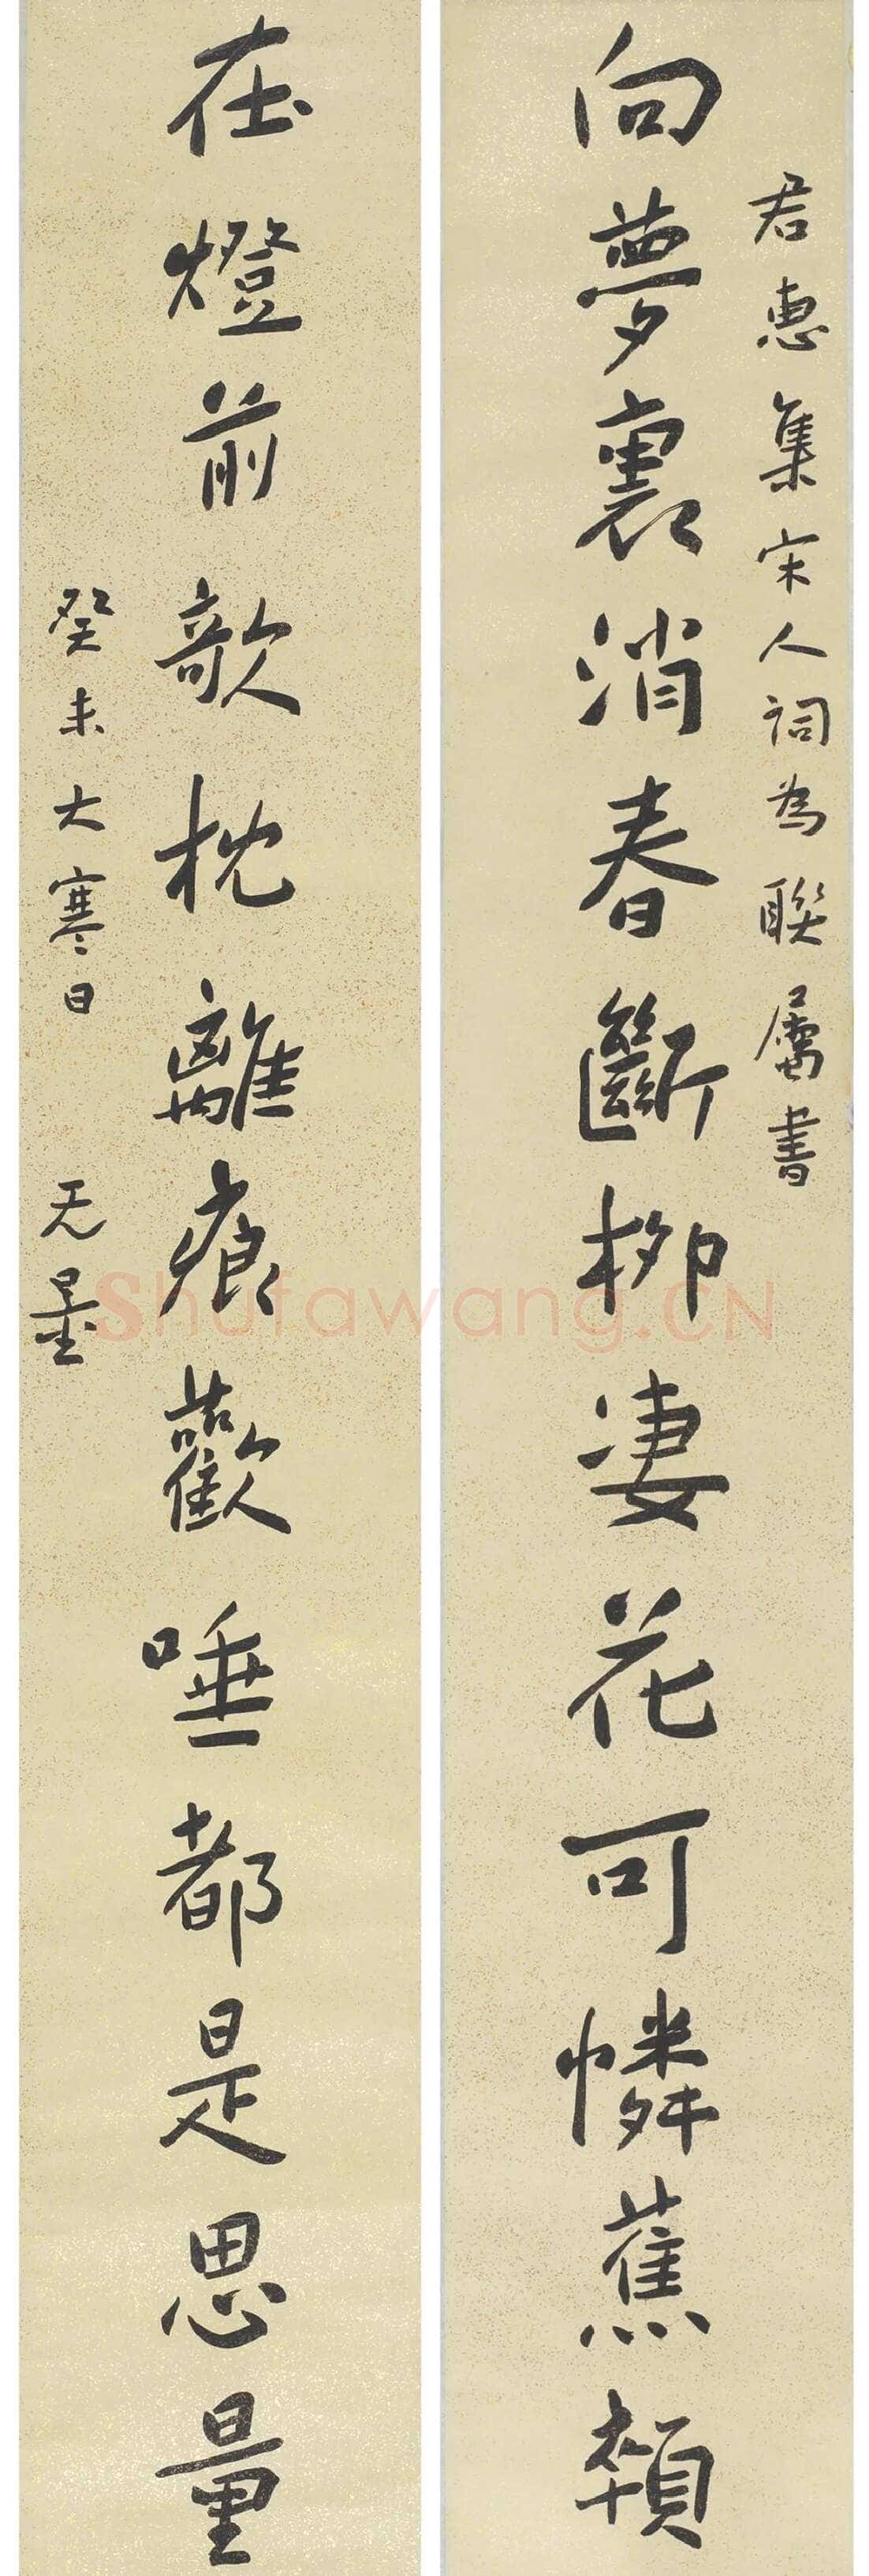 君惠集宋人詞為聯屬書
向夢裏消春斷柳凄花可憐蕉顇
在燈前欹枕離痕歡唾都是思量
癸未大寒日 无量
Shufawang.CN